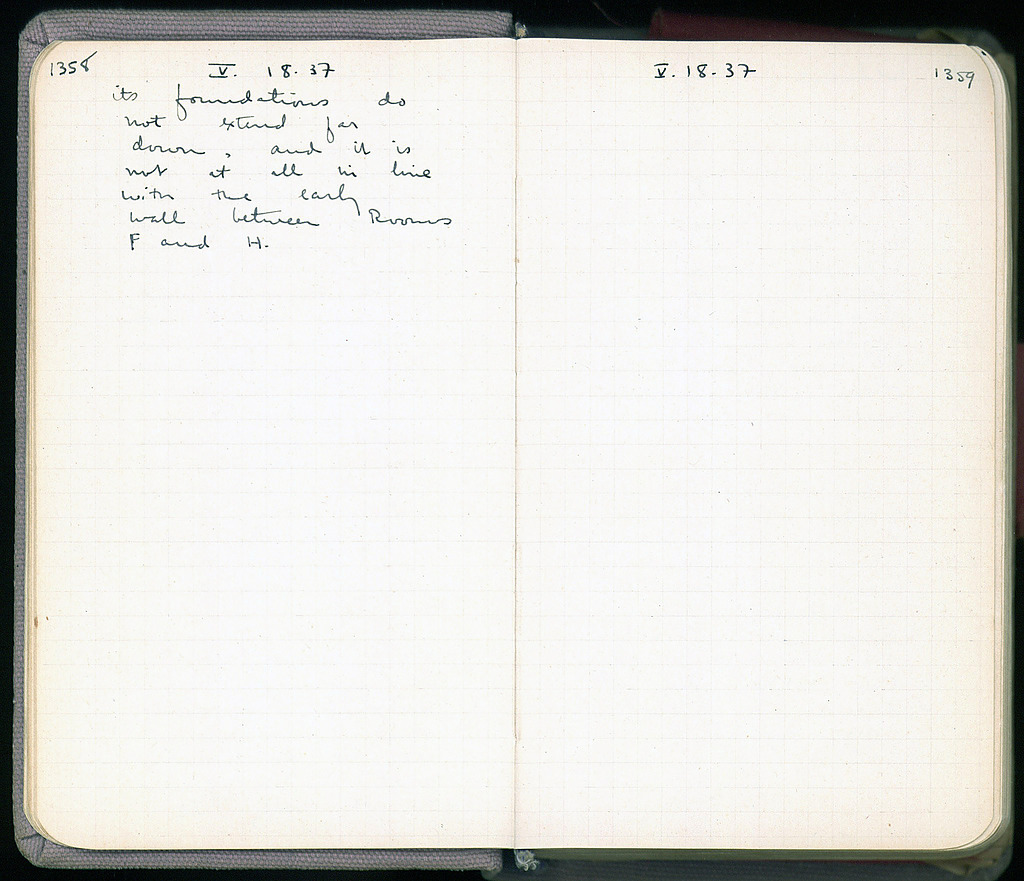 1358
V. 18.37
its foundations do
not extend far
down, and it is
not at all in line
with the early
wall between Rooms
F and H.
V. 18.37
1359